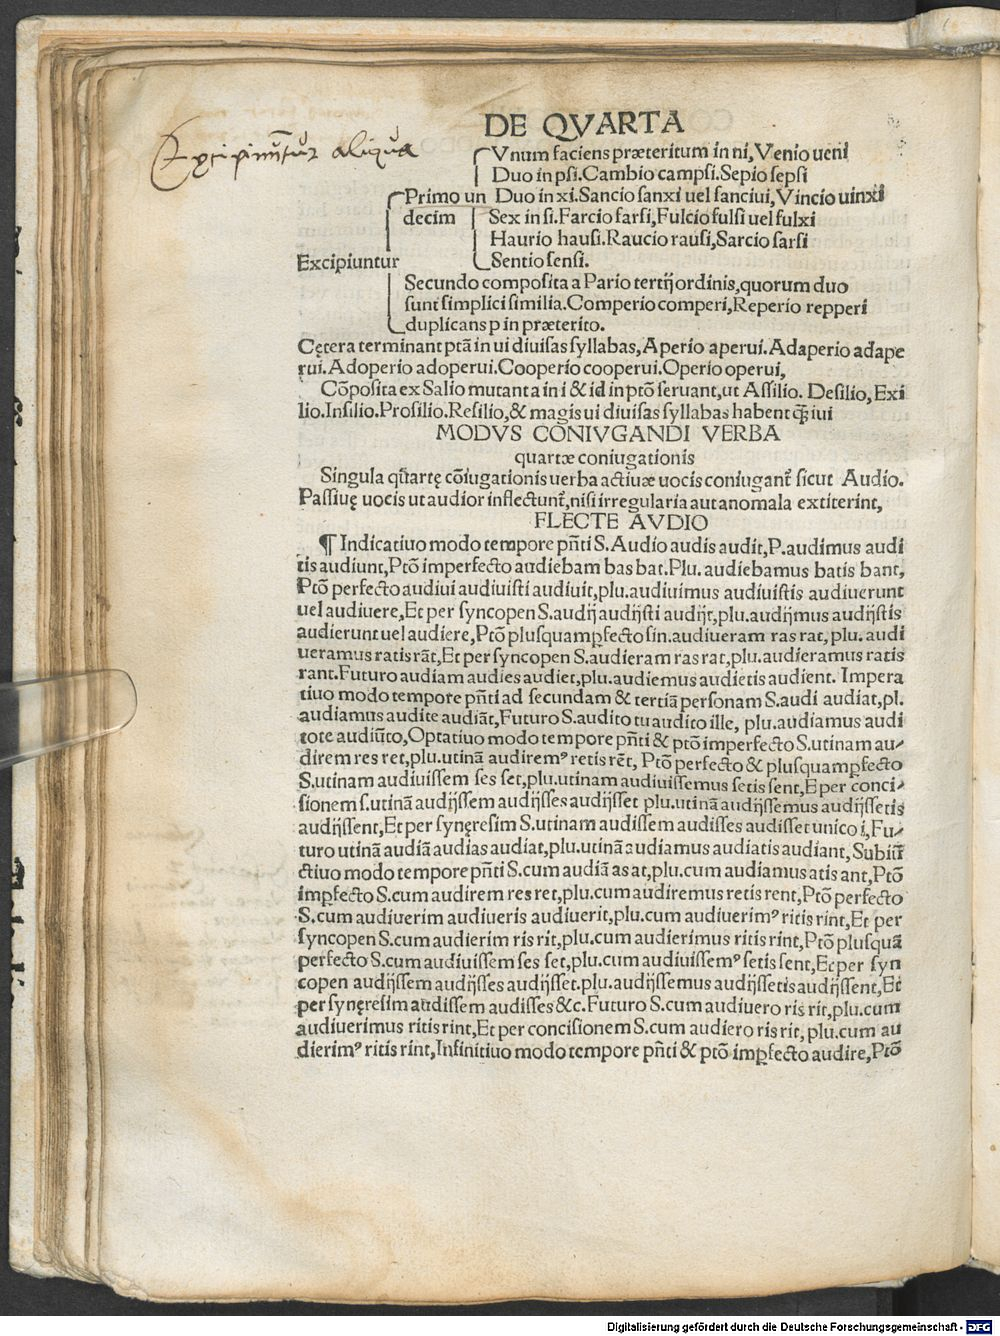 DE QVARTA
Excipiūtur aliqua
Vnum faciens præteritum in ni, Venio ueni
Duo in psi. Cambio campsi. Sepio sepsi
Primo un Duo in xi. Sancio sanxi uel sanciui, Vincio uinxi
decim Sex in si. Farcio farsi, Fulcio fulsi uel fulxi
Haurio hausi. Raucio rausi, Sarcio sarsi
Excipiuntur Sentio sensi.
Secundo composita a Pario tertij ordinis, quorum duo
sunt simplici similia. Comperio comperi, Reperio repperi
duplicans p in præterito.
Cętera terminant ptā in ui diuisas syllabas, Aperio aperui. Adaperio adape
rui. Adoperio adoperui. Cooperio cooperui. Operio operui,
Cōposita ex Salio mutant a in i & id in ptō seruant, ut Assilio. Desilio, Exi
lio. Insilio. Prosilio. Resilio, & magis ui diuisas syllabas habent q̄ȝ iui
MODVS CONIVGANDI VERBA
quartæ coniugationis
Singula q̄artę cōiugationis uerba actiuæ uocis coniugant᷑ sicut Audio.
Passiuę uocis ut audior inflectunt᷑, nisi irregularia aut anomala extiterint,
FLECTE AVDIO
¶ Indicatiuo modo tempore pñti S. Audio audis audit, P. audimus audi
tis audiunt, Ptō imperfecto audiebam bas bat. Plu. audiebamus batis bant,
Ptō perfecto audiui audiuisti audiuit, plu. audiuimus audiuistis audiuerunt
uel audiuere, Et per syncopen S. audij audijsti audijt, plu. audijmus audijstis
audierunt uel audiere, Ptō plusquamꝑfecto sin. audiueram ras rat, plu. audi
ueramus ratis rāt, Et per syncopen S. audieram ras rat, plu. audieramus ratis
rant. Futuro audiam audies audiet, plu. audiemus audietis audient. Impera
tiuo modo tempore pñti ad secundam & tertiā personam S. audi audiat, pl.
audiamus audite audiāt, Futuro S. audito tu audito ille, plu. audiamus audi
tote audiūto, Optatiuo modo tempore pñti & ptō imperfecto S. utinam au⸗
direm res ret, plu. utinā audiremꝰ retis rēt, Ptō perfecto & plusquamꝑfecto
S. utinam audiuissem ses set, plu. utinam audiuissemus setis sent, E per conci⸗
sionem s. utinā audijssem audijsses audijsset plu. utinā audijssemus audijssetis
audijssent, Et per synęresim S. utinam audissem audisses audisset unico i, Fu⸗
turo utinā audiā audias audiat, plu. utinā audiamus audiatis audiant, Subiū
ctiuo modo tempore pñti S. cum audiā as at, plu. cum audiamus atis ant, Ptō
imꝑfecto S. cum audirem res ret, plu. cum audiremus retis rent, Ptō perfecto
S. cum audiuerim audiueris audiuerit, plu. cum audiuerimꝰ ritis rint, Et per
syncopen S. cum audierim ris rit, plu. cum audierimus ritis rint, Ptō plusquā
perfecto S. cum audiuissem ses set, plu. cum audiuissemꝰ setis sent, Et per syn
copen audijssem audijsses audijsset. plu. audijssemus audijssetis audijssent, Et
per synęresim audissem audisses &c. Futuro S. cum audiuero ris rit, plu. cum
audiuerimus ritis rint, Et per concisionem S. cum audiero ris rit, plu. cum au
dierimꝰ ritis rint, Infinitiuo modo tempore pñti & ptō imꝑfecto audire, Ptō
Digitalisierung gefördert durch die Deutsche Forschungsgemeinschaft - DFG